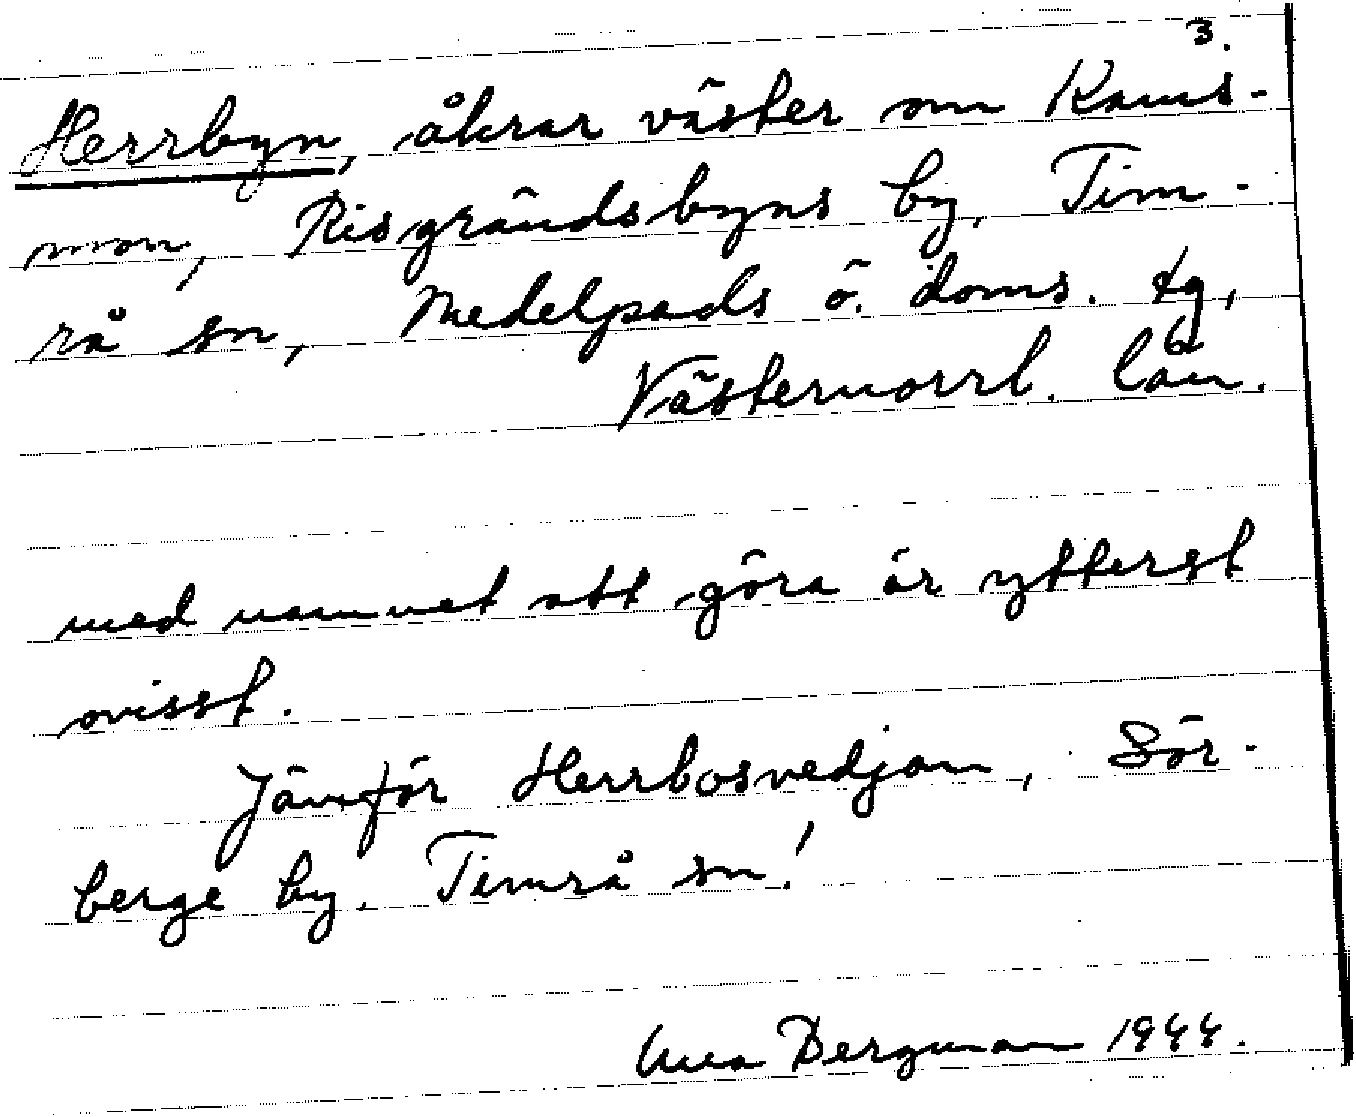 3.
Herrbyn, åkrar väster om Rams-
mon, Risgrändsbyns by, Tim-
rå sn, Medelpads ö. doms. tg,
Västernorrl. län.
med namnet att göra är ytterst
ovisst.
Jämför Herrbosvedjan, Sör-
berge by. Timrå sn!
Bergman 1944.